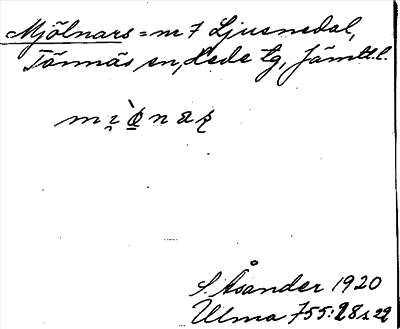 Mjölnars = m 7 Ljusnedal,
Tännäs sn, Hede tg, Jämtl. l.
S. Åsander 1920
Ulma 755:28 s. 22